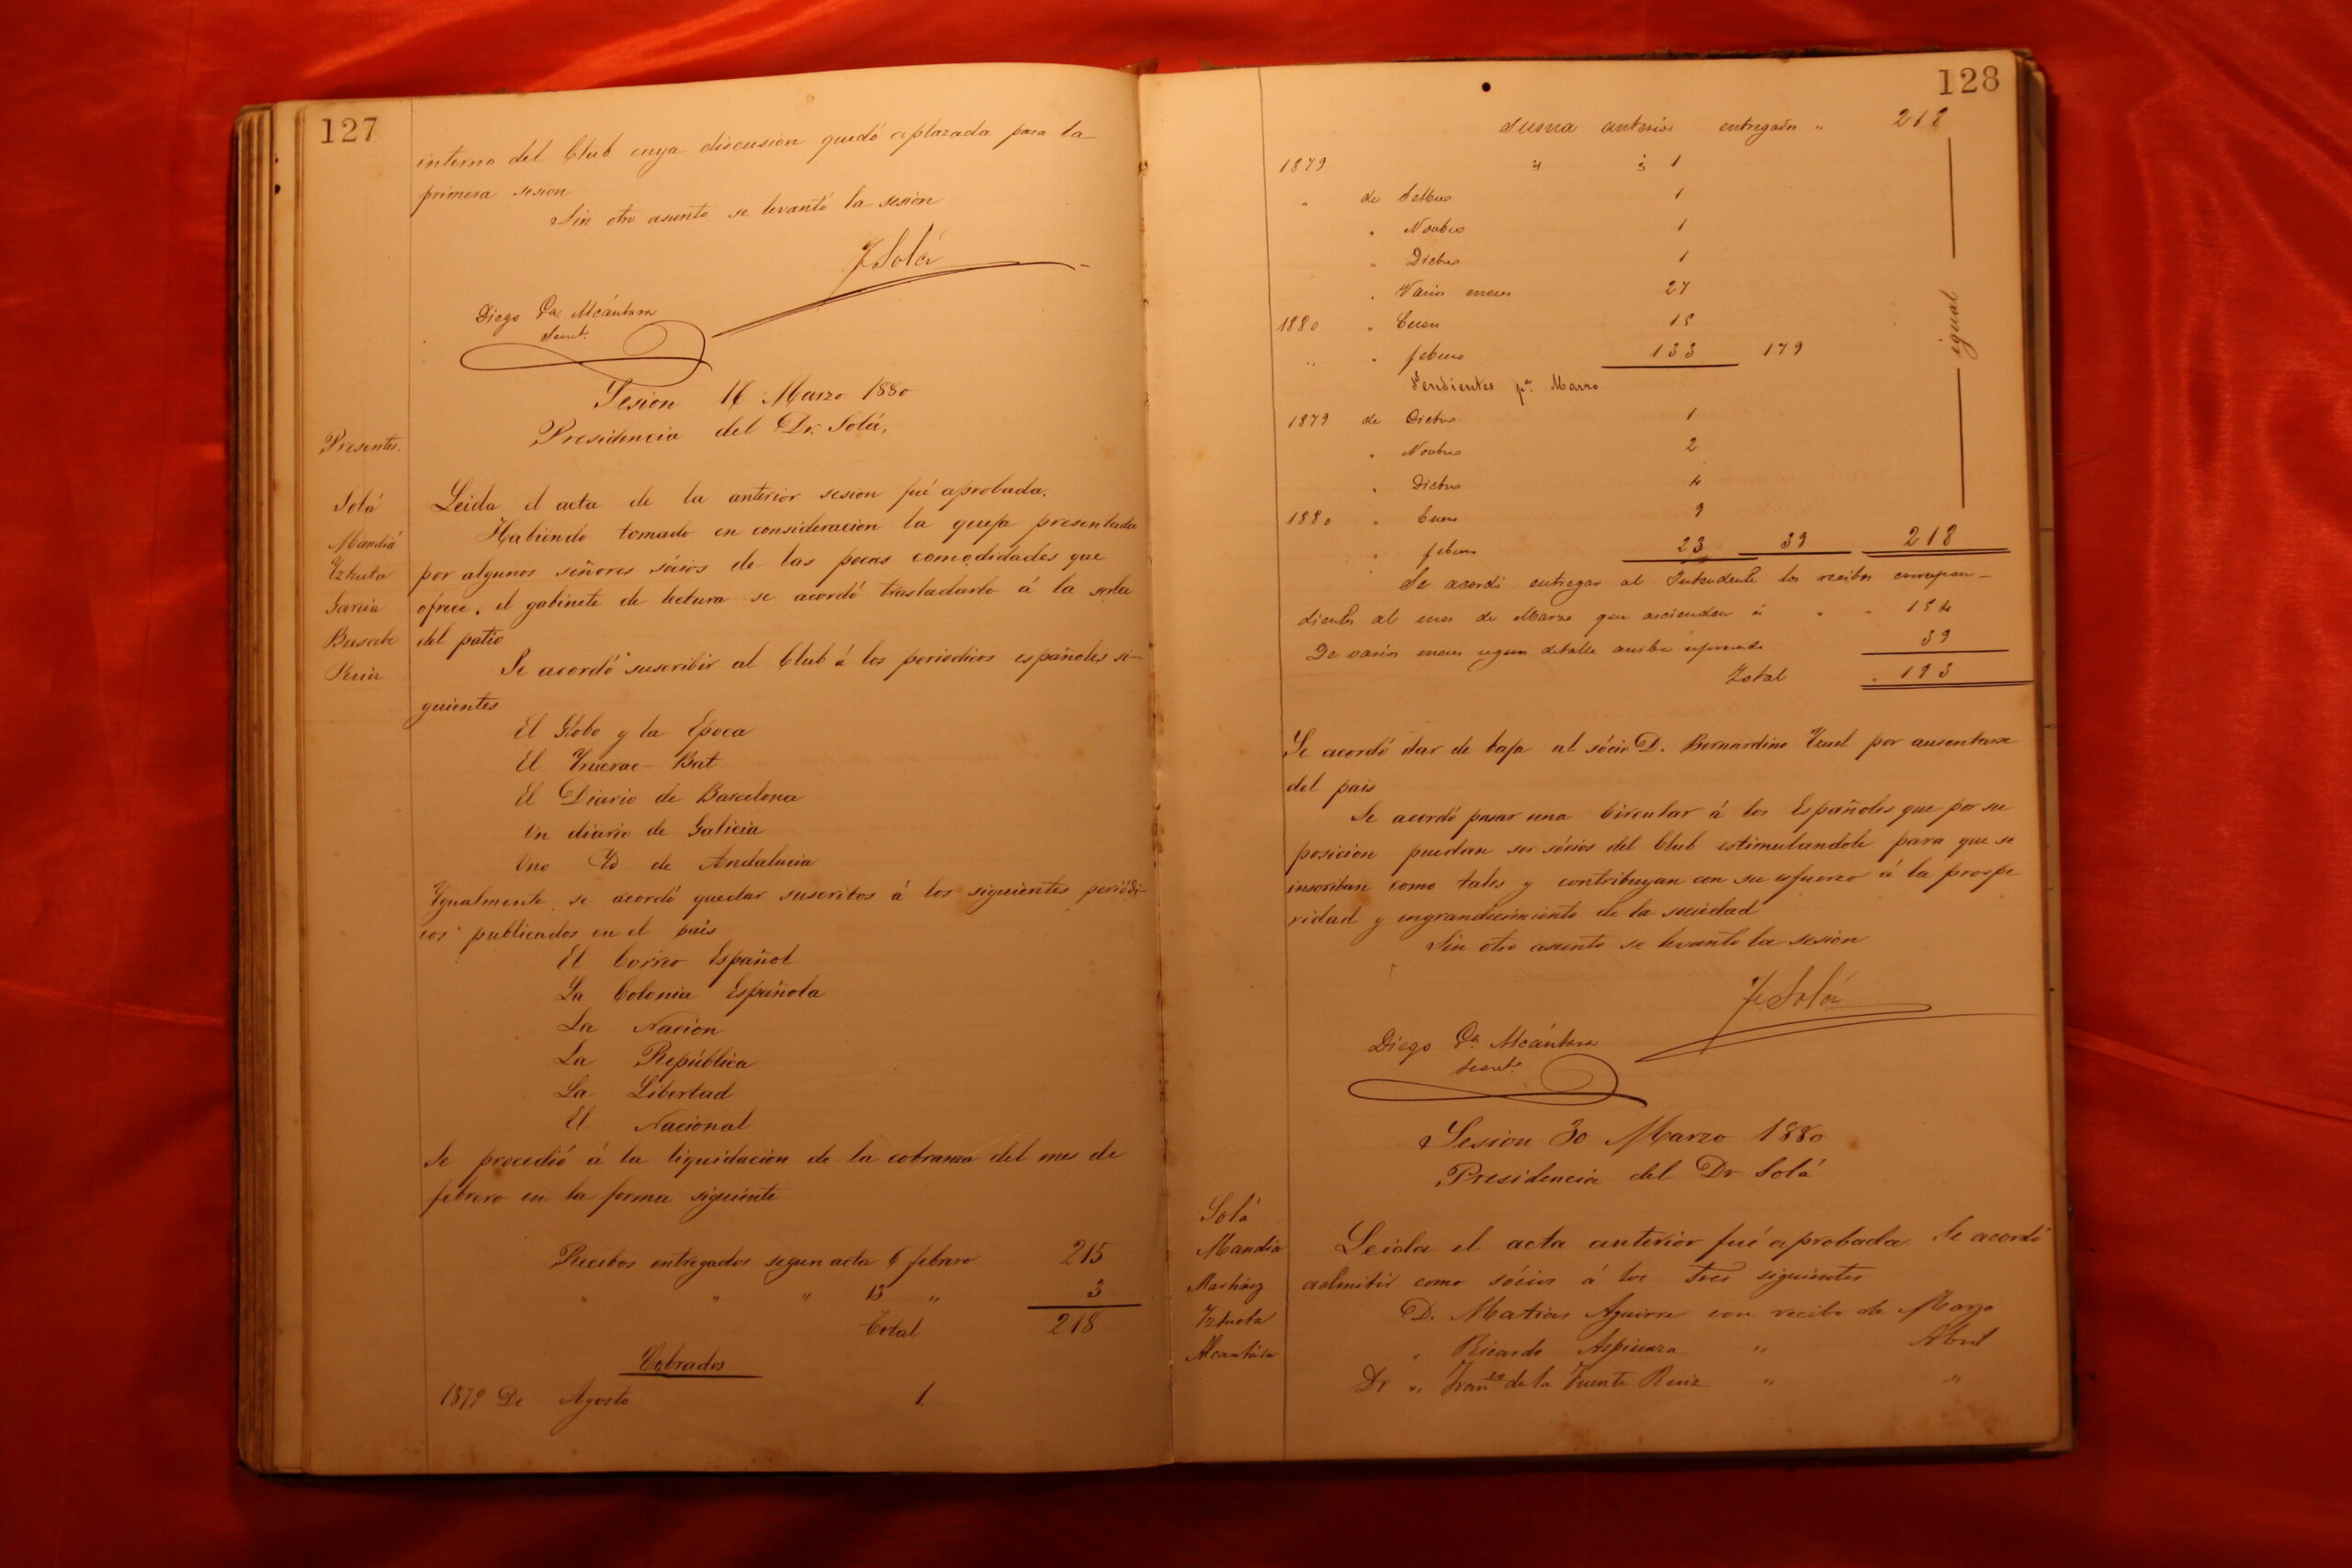 127
interno del Club cuya discusion quedó aplazada para la
primera sesion
Sin otro asunto se levantó la sesión
J Solá
Diego Ga. Alcántara
Secret.
Sesion 16 Marzo 1880
Presidencia del Dr. Solá,
Presentes.
Solá
Mandiá
Yzhueta
Garcia
Basabe
Leida el acta de la anterior sesion fué aprobada.
Habiendo tomado en consideracion la queja presentada
por algunos señores sócios de las pocas comodidades que
ofrece, el gabinete de lectura se acordó trasladarlo á la sala
del patio
Se acordó suscribir al Club á los periodicos españoles si-
guientes
El Globo y la Epoca
El Yrurac-Bat
El Diario de Barcelona
Un diario de Galicia
Uno Yd de Andalucia
Ygualmente se acordó quedar suscritos á los siguientes periódi-
cos publicados en el pais
El Correo Español
La Colonia Española
La Nacion
La República
La Libertad
El Nacional
Se procedió á la liquidacion de la cobranza del mes de
febrero en la forma siguiente
Recibos entregados segun acta 6 febrero 215
" " " 13 " 3
Total 218
Cobrados
1879 De Agosto 1.
128
Suma anterior entregados " 218
1879 " 1
" de Setbre 1
" Novbre 1
" Dicbre 1
" Varios meses 27
1880 " Enero 15
" " febrero 133 179
igual
Pendientes pa. Marzo
1879 de Octbre 1
" Novbre 2
" Dicbre 4
1880 " Enero 9
" febrero 23 39 218
Se acordó entregar al Intendente los recibos correspon-
dientes al mes de Marzo que ascienden á " " 154
De varios meses segun detalle arriba espresado 39
Total " 193
Se acordó dar de baja al sócio D. Bernardino por ausentarse
del pais
Se acordó pasar una Circular á los Españoles que por su
posicion puedan ser sócios del Club estimulandole para que se
inscriban como tales y contribuyan con su esfuerzo á la prospe
ridad y engrandecimiento de la sociedad
Sin otro asunto se levantó la sesion
J Solá
Diego Ga. Alcántara
Secret.
Sesion 30 Marzo 1880
Presidencia del Dr Solá
Solá
Mandiá
Martinez
Yzhueta
Alcantára
Leida el acta anterior fué aprobada. Se acordó
admitir como sócios á los tres siguientes
D. Matias Aguirre con recibo de Marzo
" Ricardo " Abril
Dr " Franco de la Fuente Ruiz " "